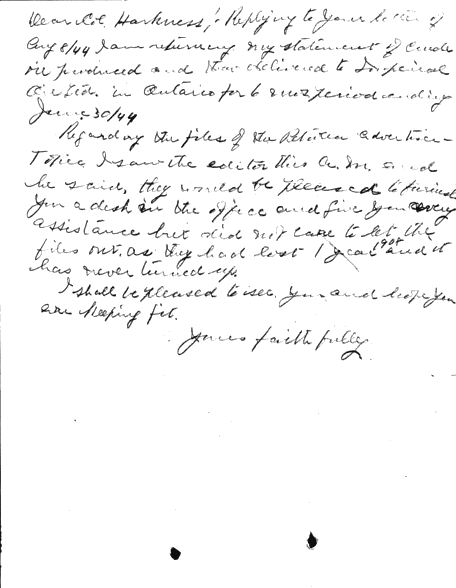 Dear Col. Harkness,:- Replying to your letter of
Aug 8/44 I am returning my statement of crude
oil produced and then delivered to Imperial
Oil Ltd. in Ontario for 6 mos period ending
June 30/44
Regarding the files of the Petrolia Advertiser-
Topic I saw the editor this A.M. and
he said, they would be pleased to furnish
you a desk in the office and give you every
assistance but did not care to let the
files out, as they had lost 1 year 1908 and it
has never turned up.
I shall be pleased to see you and hope you
are keeping fit.
Yours faithfully